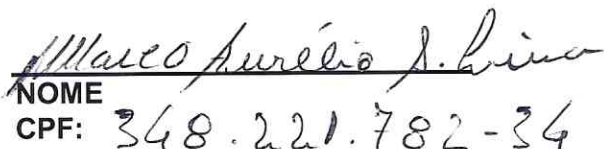 Marco Aurélio S. Lima
NOME
CPF: 348.221.782-34